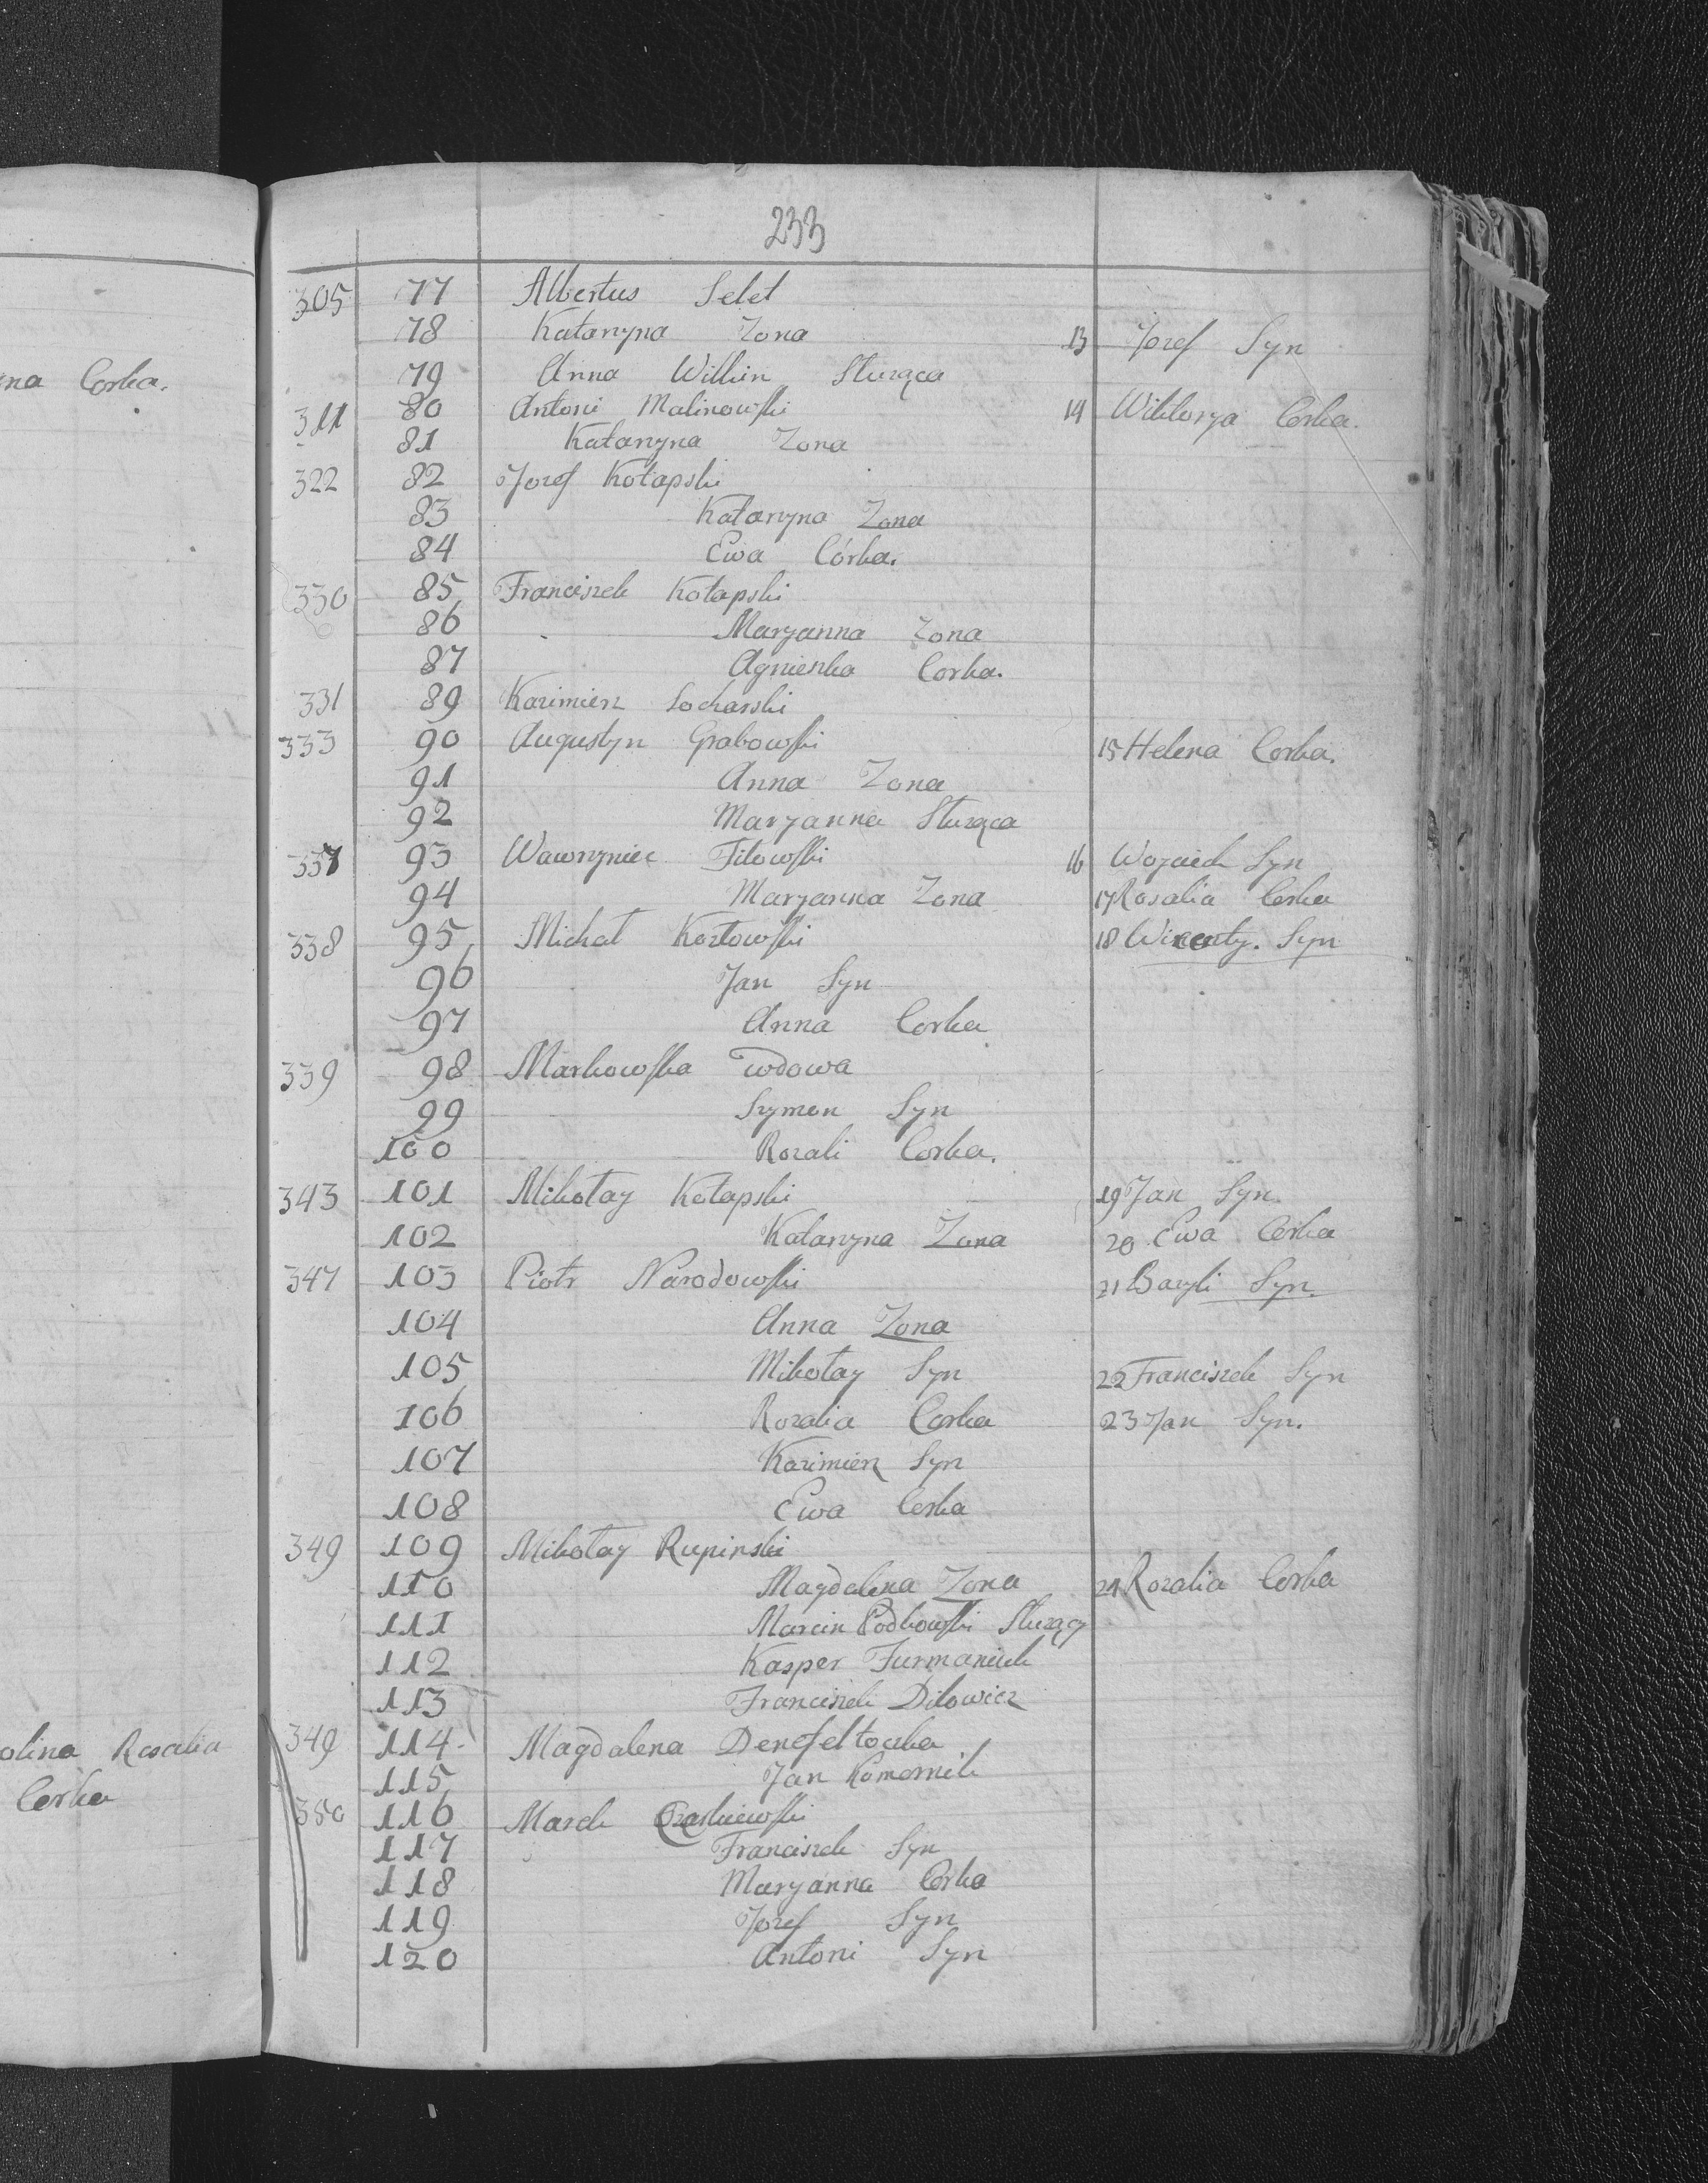 233
na Corka.
305 77 Albertus Selet
78 Katarzyna Zona 13 Jozef Syn
79 Anna Wilkin Sluząca
311 80 Antoni Malinowski 14 Wiktorya Corka.
81 Katarzyna Zona
322 82 Jozef Kotapski
83 Katarzyna Zona
84 Ewa Córka.
330 85 Franciszek Kotapski
86 Maryanna Zona
87 Agnieszka Corka.
331 89 Kazimierz Socharski
333 90 Augustyn Grabowski 15 Helena Corka.
91 Anna Zona
92 Maryanna Sluząca
337 93 Wawrzyniec Titowski 16 Woyciech Syn
94 Maryanna Zona 17 Rosalia Corka
338 95 Michał Kozłowski 18 Wincenty. Syn
96 Jan Syn
97 Anna Corka
339 98 Markowska wdowa
99 Szymon Syn
100 Rozali Corka.
343 101 Mikołay Kotapski 19 Jan Syn.
102 Katarzyna Zona 20 Ewa Corka
347 103 Piotr Narodowski 21 Bazyli Syn.
104 Anna Zona
105 Mikołay Syn 22 Franciszek Syn
106 Rozalia Corka 23 Jan Syn.
107 Kazimierz Syn
108 Ewa Corka
349 109 Mikołay Rupinski
110 Magdalena Zona 24 Rozalia Corka
111 Marcin Podkowski Sluzący
112 Kasper Furmaniak
113 Franciszek Dilowicz
olina Rosalia
349 114 Magdalena
115 Jan Komornik
Corka
350 116 Marek
117 Franciszek Syn
118 Maryanna Corka
119 Jozef Syn
120 Antoni Syn